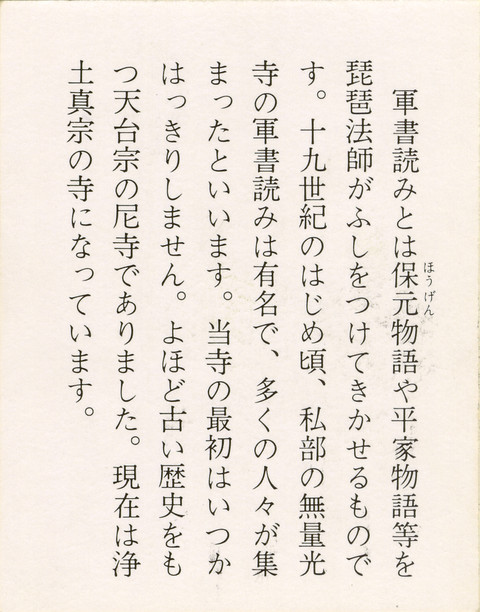 軍書読みとは保元物語や平家物語等を
ほうげん
琵琶法師がふしをつけてきかせるもので
す。十九世紀のはじめ頃、私部の無量光
寺の軍書読みは有名で、多くの人々が集
まったといいます。当寺の最初はいつか
はっきりしません。よほど古い歴史をも
つ天台宗の尼寺でありました。現在は浄
土真宗の寺になっています。